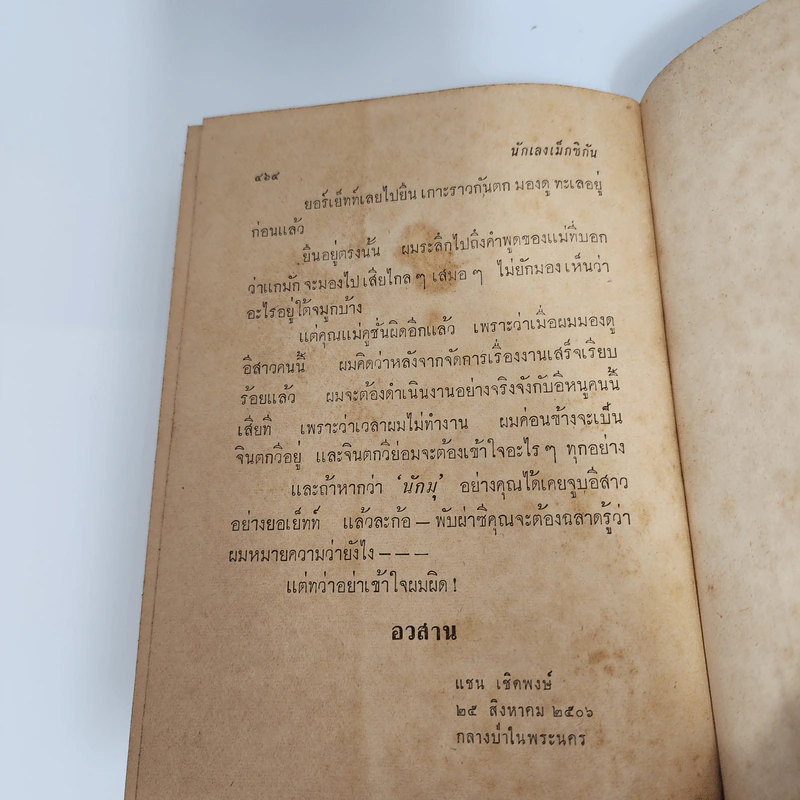 นักเลงเม็กซิกัน
๔๖๔
ยอร์เย็ทท์เลยไปยืน เกาะราวกันตก มองดู ทะเลอยู่
ก่อนแล้ว
ยืนอยู่ตรงนั้น ผมระลึกไปถึงคำพูดของแม่ที่บอก
ว่าแกมัก จะมองไป เสียไกล ๆ เสมอ ๆ ไม่ยักมอง เห็นว่า
อะไรอยู่ใต้จมูกบ้าง
แต่คุณแม่คูชั่นผิดอีกแล้ว เพราะว่าเมื่อผมมองดู
อีสาวคนนี้ ผมคิดว่าหลังจากจัดการเรื่องงานเสร็จเรียบ
ร้อยแล้ว ผมจะต้องดำเนินงานอย่างจริงจังกับอีหนูคนนี้
เสียที เพราะว่าเวลาผมไม่ทำงาน ผมค่อนข้างจะเป็น
จินตกวีอยู่ และจินตกวีย่อมจะต้องเข้าใจอะไร ๆ ทุกอย่าง
และถ้าหากว่า ‘นักมุ’ อย่างคุณได้เคยจูบอีสาว
อย่างยอเย็ทท์ แล้วละก้อ — พับผ่าซิคุณจะต้องฉลาดรู้ว่า
ผมหมายความว่ายังไง – – –
แต่ทว่าอย่าเข้าใจผมผิด !
อวสาน
แชน เชิคพงษ์
๒๕ สิงหาคม ๒๕๐๖
กลางป่าในพระนคร